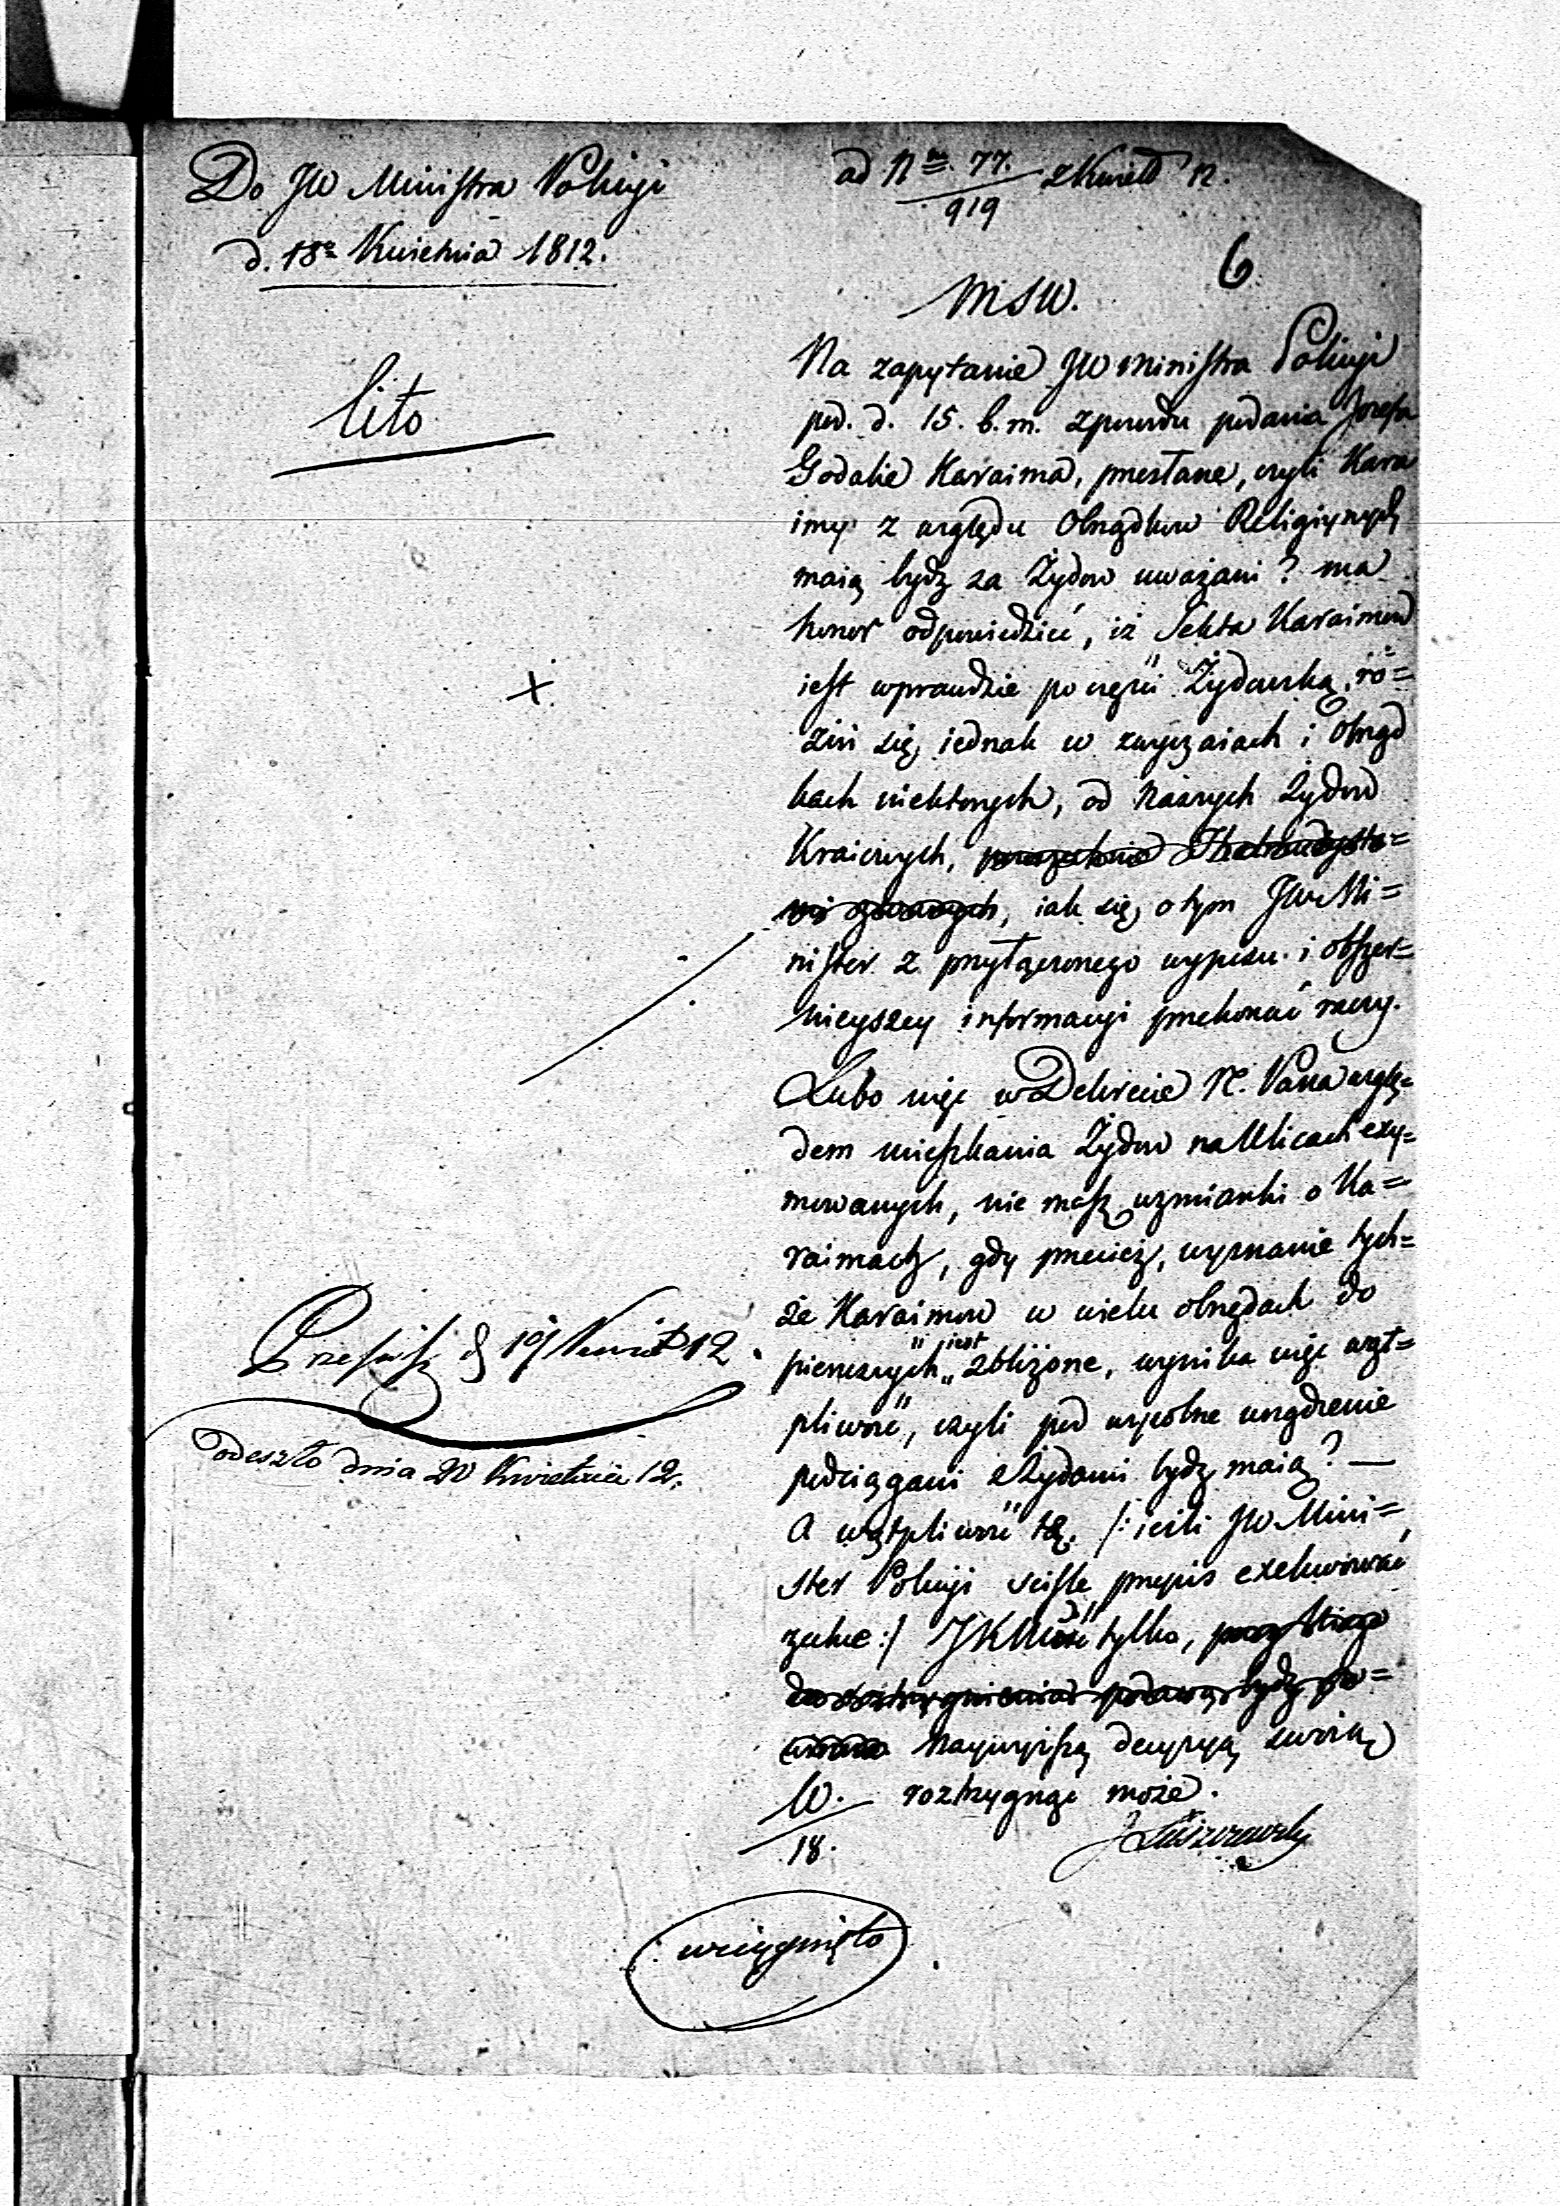 Do JW Ministra Policyi
d. 18º Kwietnia 1812.
cito
ad Nm 77. z Kwiet. 12.
919
6
MSW.
Na zapytanie JW Ministra Policyi
pod. d. 15. b. m. zpowodu podania Jozefa
Godalie Karaima, przesłane, czyli Kara
imy z względu Obrządkow Religiynych
maią bydź za Żydow uważani? ma
honor odpowiedzieć, iż Sekta Karaimow
iest wprawdzie po części Żydowską, ró=
żni się iednak w zwyczaiach i obrząd
kach niektorych, od naszych Żydow
Kraiowych, powszechnie Thalmudysta=
mi zwanych, iak się o tym JW Mi=
nister z przyłączonego wypisu i obszer=
nieyszey informacyi przekonać raczy.
Lubo więc w Dekrecie N. Pana wzglę=
dem mieszkania Żydow na Ulicach exy=
mowanych, nie masz wzmianki o Ka=
raimach, gdy przecież, wyznanie tych=
że Karaimow w wielu obrzędach do
pierwszych jest zbliżone, wynika więc wąt=
pliwość, czyli pod wspolne urządzenie
podciągani z Żydami bydź maią? —
A wątpliwość tę /: ieśli JW Mini=
ster Policyi ściśle przepis exekwować
zechce :/ JKMość tylko,
do rozstrzygnienia bydź po=
naywyższą decyzyą swoią
rozstrzygnąć może.
W.
18.
J Łuszczewsky
x
Przepisz. d 19 Kwiet 12
odeszło dnia 20 Kwietnia 12.
wciągnięto